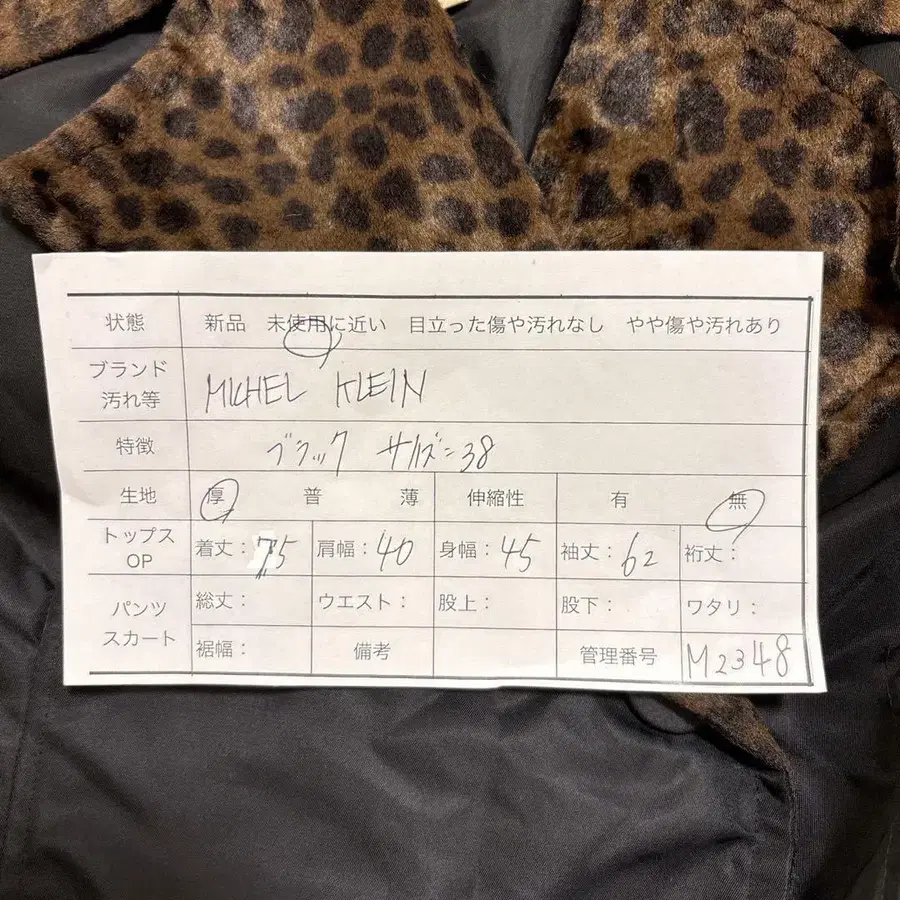 状態 新品 未使用に近い 目立った傷や汚れなし やや傷や汚れあり
ブランド
汚れ等 MICHEL KLEIN
特徴 ブラック サイズ=38
生地 厚 普 薄 伸縮性 有 無
トップス
OP 着丈:75 肩幅:40 身幅:45 袖丈:62 裄丈:
パンツ
スカート 総丈: ウエスト: 股上: 股下: ワタリ:
裾幅: 備考 管理番号 M2348